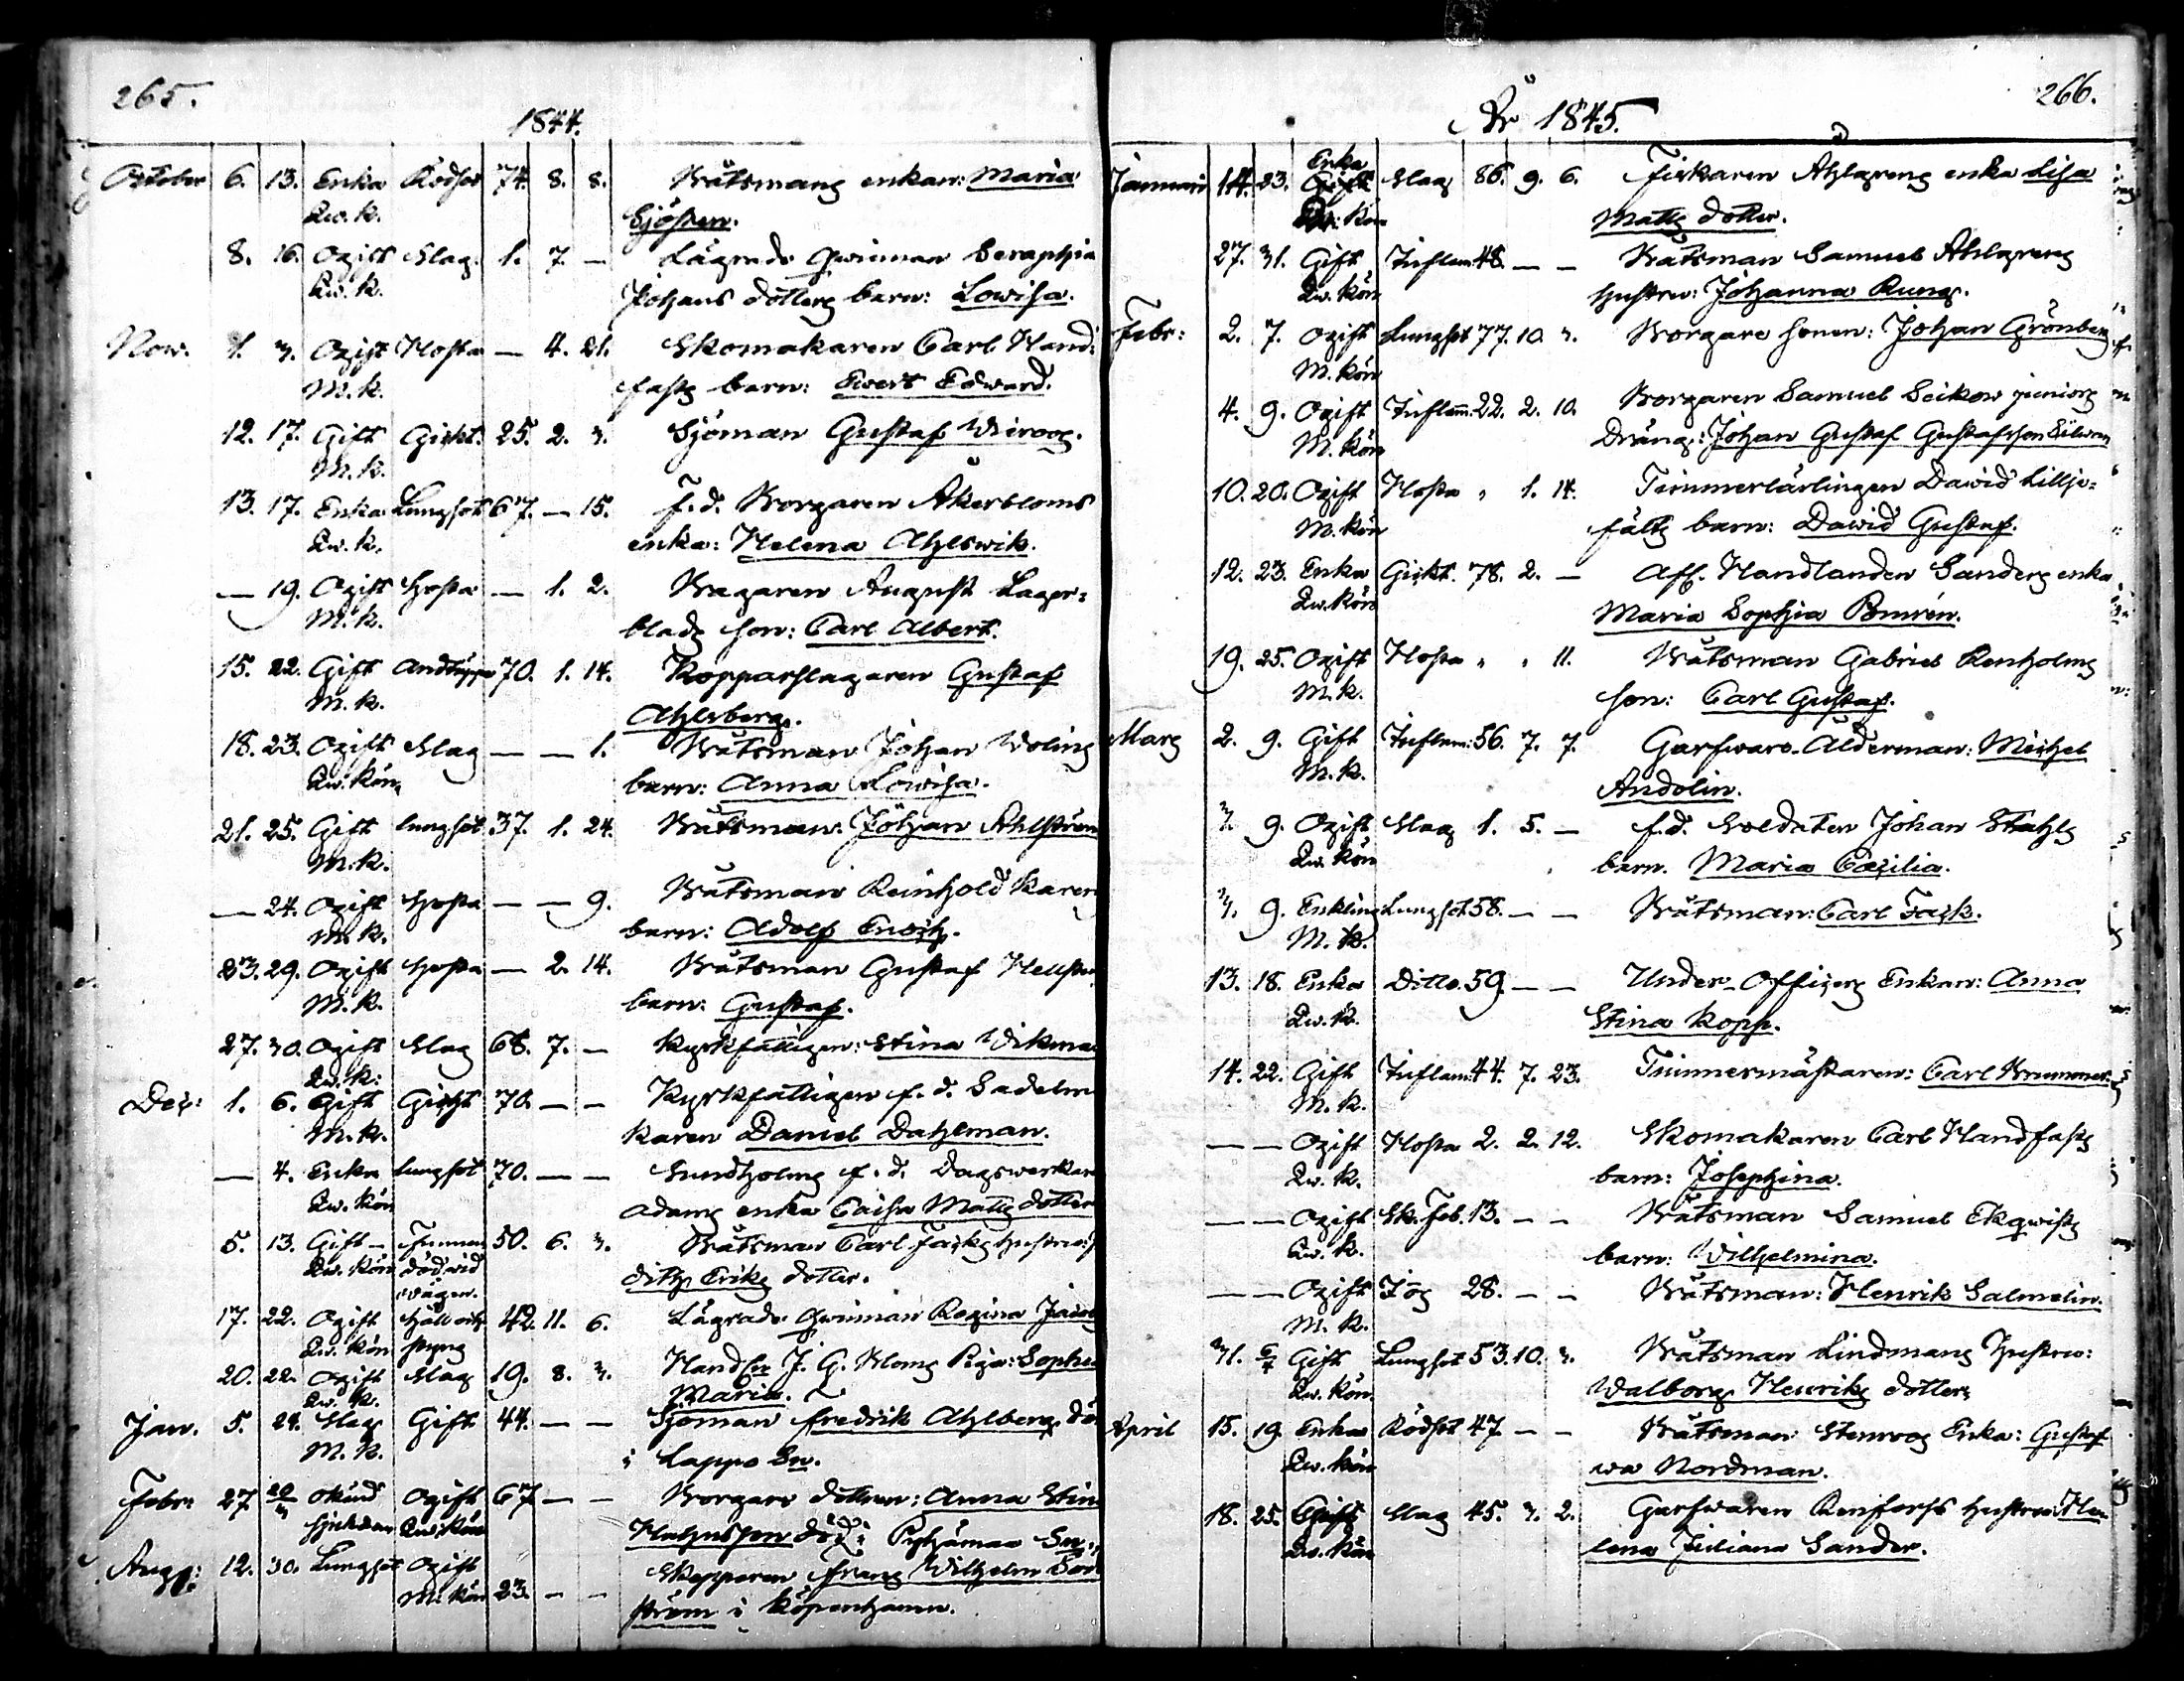 265.
1844.
October 6. 13. Enka Rödsot 74. 8. 8. Båtsmans enkan: Maria
Qw. k. Sjösten.
8. 16. Ogift Slag. 1. 7. — Lägrade qwinnan Seraphia
Qw. k. Johans dotters barn: Lowisa.
Now. 1. 3. Ogift Hosta — 4. 21. Skomakaren Carl Hand-
M. k. fasts barn: Ewert Edward.
12. 17. Gift Gickt. 25. 2. 3. Sjöman Gustaf Wiroos.
M. k.
13. 17. Enka Lungsot 67. — 15. F. d. Borgaren Åkerbloms
Qw. k. enka: Helena Ahlswik.
— 19. Ogift Hosta — 1. 2. Bagaren August Lager-
M. k. blads son: Carl Albert.
15. 22. Gift Andtäppa 70. 1. 14. Kopparslagaren Gustaf
M. k. Ahlberg.
18. 23. Ogift Slag — — 1. Båtsman Johan Wolins
Qw. kön barn: Anna Lowisa.
21. 25. Gift lungsot 37. 1. 24. Båtsman: Johan Ahlström
M. k.
— 24. Ogift Hosta — — 9. Båtsman Reinhold Karens
M. k. barn: Adolf Enoch.
23. 29. Ogift Hosta — 2. 14. Båtsman Gustaf
M. k. barn: Gustaf.
27. 30. Ogift Slag 68. 7. — Kyrkfattigen: Stina Wikma
Qw. k.
Dec: 1. 6. Gift Gickt 70. — — Kyrkfattigen f. d. Sadelm
M. k. karen Daniel Dahlman.
— 4. Enka lungsot 70. — — Sundholms f. d. Dagswerkare
Qw. kön Adams enka Caisa Matts dotter
5. 13. Gift — Funnen 50. 6. 3. Båtsman Carl Facks hustru:
Qw. kön död wid dith Eriks dotter.
wägen.
17. 22. Ogift Håll och 42. 11. 6. Lägrade qwinnan Regina Jacobs
Qw. kön styng
20. 22. Ogift Slag 19. 8. 3. Handl:n J. G. Bloms Piga: Sophia
Qw. k. Maria.
Jan. 5. 24. Slag Gift 44. — — Sjöman Fredrik Ahlberg, dö
M. k. i Lappo Sn.
Febr: 27 Okänd Ogift 67 — — Borgare dottren: Anna Stin
sjukdom Qw. kön död i Pyhämaa Sn.
Aug: 12. 30. Lungsot Ogift Skepparen Frans Wilhelm
M. kön 23. — — ström i Köpenhamn.
266.
År 1845.
Januari 14. 23. Enka Slag 86. 9. 6. Fiskaren Ahlgrens enka Lisa
Qw. kön Matts dotter.
27. 31. Gift Inflam: 48. — — Båtsman Samuel Ahlgrens
Qw. kön hustru: Johanna Rung.
Febr: 2. 7. Ogift Lungsot 77. 10. 3. Borgare sonen: Johan Grönberg
M. kön
4. 9. Ogift Inflam: 22. 2. 10. Borgaren Samuel Seikow juniors
M. kön Dräng: Johan Gustaf Gustafsson
10. 20. Ogift Hosta " 1. 14. Timmerlärlingen Dawid Lillje-
M. kön fälts barn: Dawid Gustaf.
12. 23. Enka Gickt. 78. 2. — Afl. Handlanden Sanders enka
Qw. kön Maria Sophia
19. 25. Ogift Hosta " " 11. Båtsman Gabriel Renholms
M. k. son: Carl Gustaf.
Mars 2. 9. Gift Inflam: 56. 7. 7. Garfware-Ålderman: Michel
M. k. Andelin.
3. 9. Ogift Slag 1. 5. — f. d. Soldaten Johan Ståhls
Qw. kön barn. Maria Cæcilia.
3. 9. Enkling Lungsot 58. — — Båtsman: Carl Fack.
M. k.
13. 18. Enka Ditto. 59 — — Under-Officers Enkan: Anna
Qw. k. Stina Kopp.
14. 22. Gift Inflam: 44. 7. 23. Timmermästaren: Carl Brummer.
M. k.
— — Ogift Hosta 2. 2. 12. Skomakaren Carl Handfasts
Qw. k. barn: Josephina.
— — Ogift Sk. Feb. 13. — — Båtsman Samuel Ekqwists
Qw. k. barn: Wilhelmina.
— — Ogift 28. — — Båtsman: Henrik Salmelin.
M. k.
31. 6/4 Gift Lungsot 53. 10. 3. Båtsman Lindmans Hustru:
Qw. kön Walborg Henriks dotter
April 15. 19. Enka Rödsot 47 — — Båtsman Stenroos Enka: Gustaf
Qw. kön wa Nordman.
18. 25. Gift Slag 45. 3. 2. Garfwaren Renfors hustru: He-
Qw. kön lena Juliana Sander.